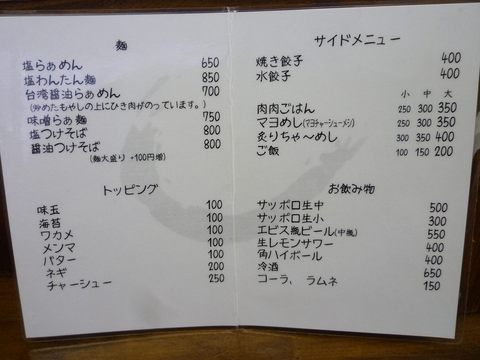 麺
塩らぁめん 650
塩わんたん麺 850
台湾醤油らぁめん 700
(炒めたもやしの上にひき肉がのっています。)
味噌らぁ麺 750
塩つけそば 800
醤油つけそば 800
(麺大盛り +100円増)
トッピング
味玉 100
海苔 100
ワカメ 100
メンマ 100
バター 100
ネギ 200
チャーシュー 250
サイドメニュー
焼き餃子 400
水餃子 400
小 中 大
肉肉ごはん 250 300 350
マヨめし(マヨチャーシューメシ) 250 300 350
炙りちゃ〜めし 300 350 400
ご飯 100 150 200
お飲み物
サッポロ生中 500
サッポロ生小 300
エビス瓶ビール(中瓶) 550
生レモンサワー 400
角ハイボール 400
冷酒 650
コーラ、ラムネ 150